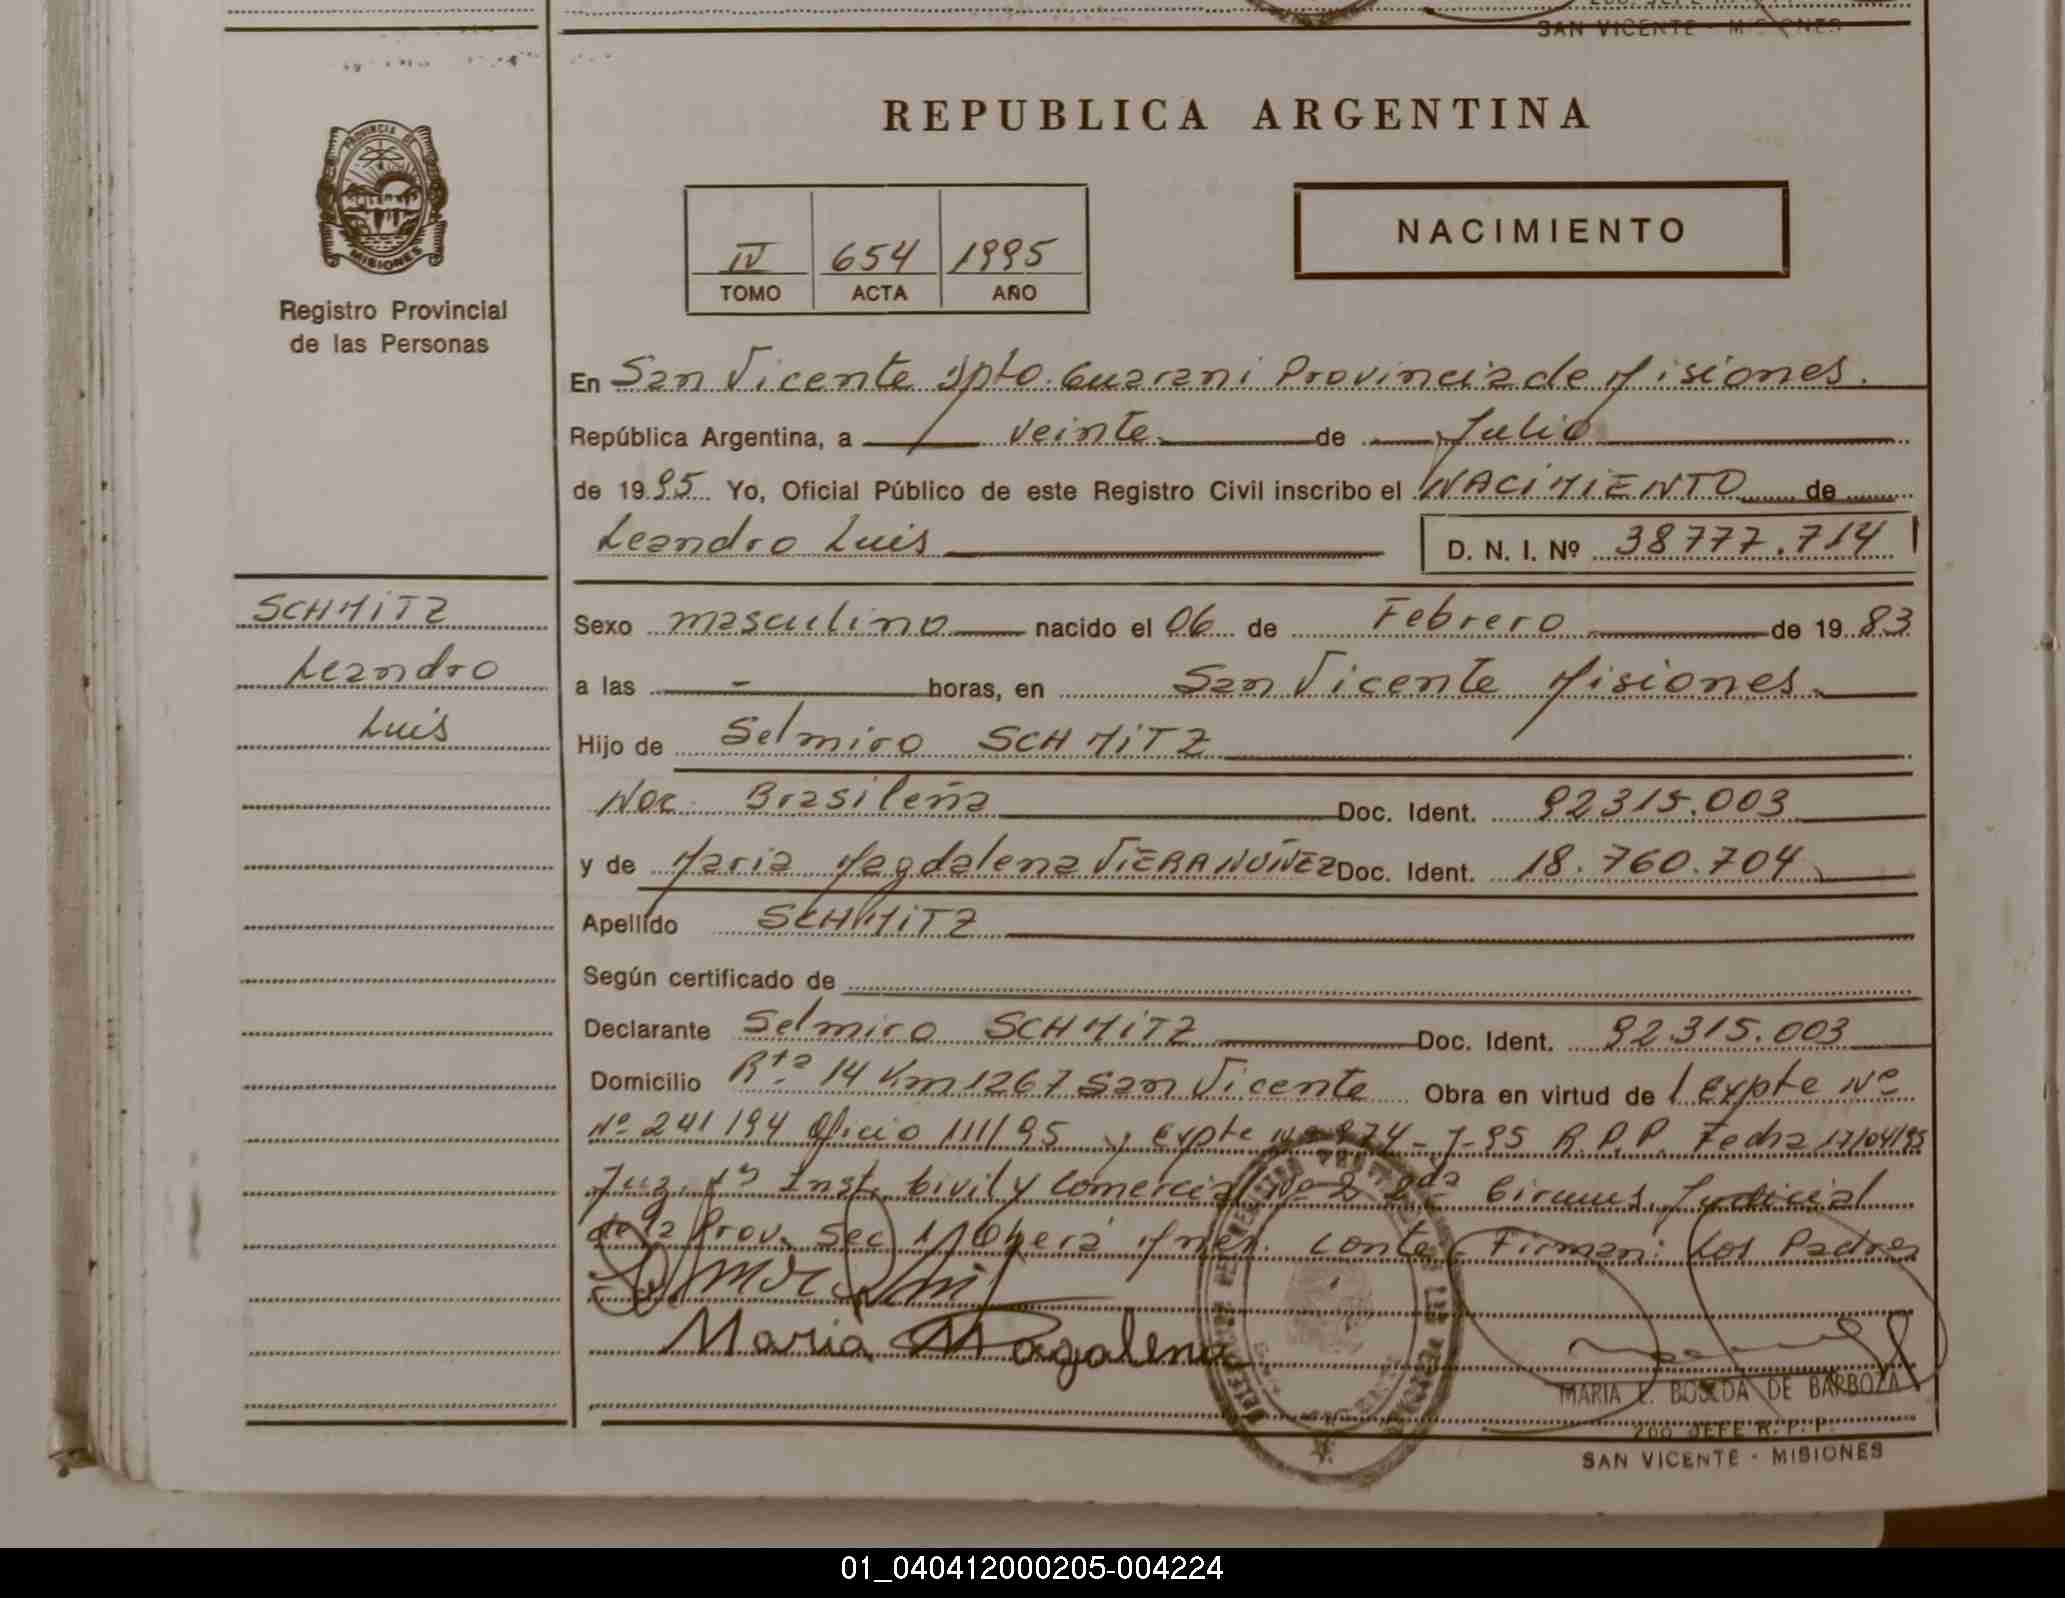 SAN VICENTE - MISIONES
PROVINCIA DE
MISIONES
Registro Provincial
de las Personas
REPUBLICA ARGENTINA
IV 654 1995
TOMO ACTA AÑO
NACIMIENTO
En San Vicente Dpto. Guarani Provincia de Misiones.
República Argentina, a veinte de Julio
de 1995 Yo, Oficial Público de este Registro Civil inscribo el NACIMIENTO de
Leandro Luis D. N. I. Nº 38777.714
SCHMITZ
Leandro
Luis
Sexo masculino nacido el 06 de Febrero de 1983
a las - horas, en San Vicente Misiones
Hijo de Selmiro SCHMITZ
Nac. Brasileña Doc. Ident. 92315.003
y de Maria Magdalena VIERA NUÑEZ Doc. Ident. 18.760.704
Apellido SCHMITZ
Según certificado de
Declarante Selmiro SCHMITZ Doc. Ident. 92.315.003
Domicilio Rta 14 Km 1267 San Vicente Obra en virtud de Expte Nº
Nº 241/94 Oficio 111/95 y Expte Nº 974-J-95 R.P.P. Fecha 17/04/95
Juz. 1º Inst. Civil y Comercial Nº 2 2da Circuns. Judicial
de la Prov. Sec 1 Oberá Mnes. Conte. Firman: Los Padres
Maria Magalena
MARIA E. BOSEDA DE BARBOZA
2DO JEFE R. P. P.
SAN VICENTE - MISIONES
01_040412000205-004224